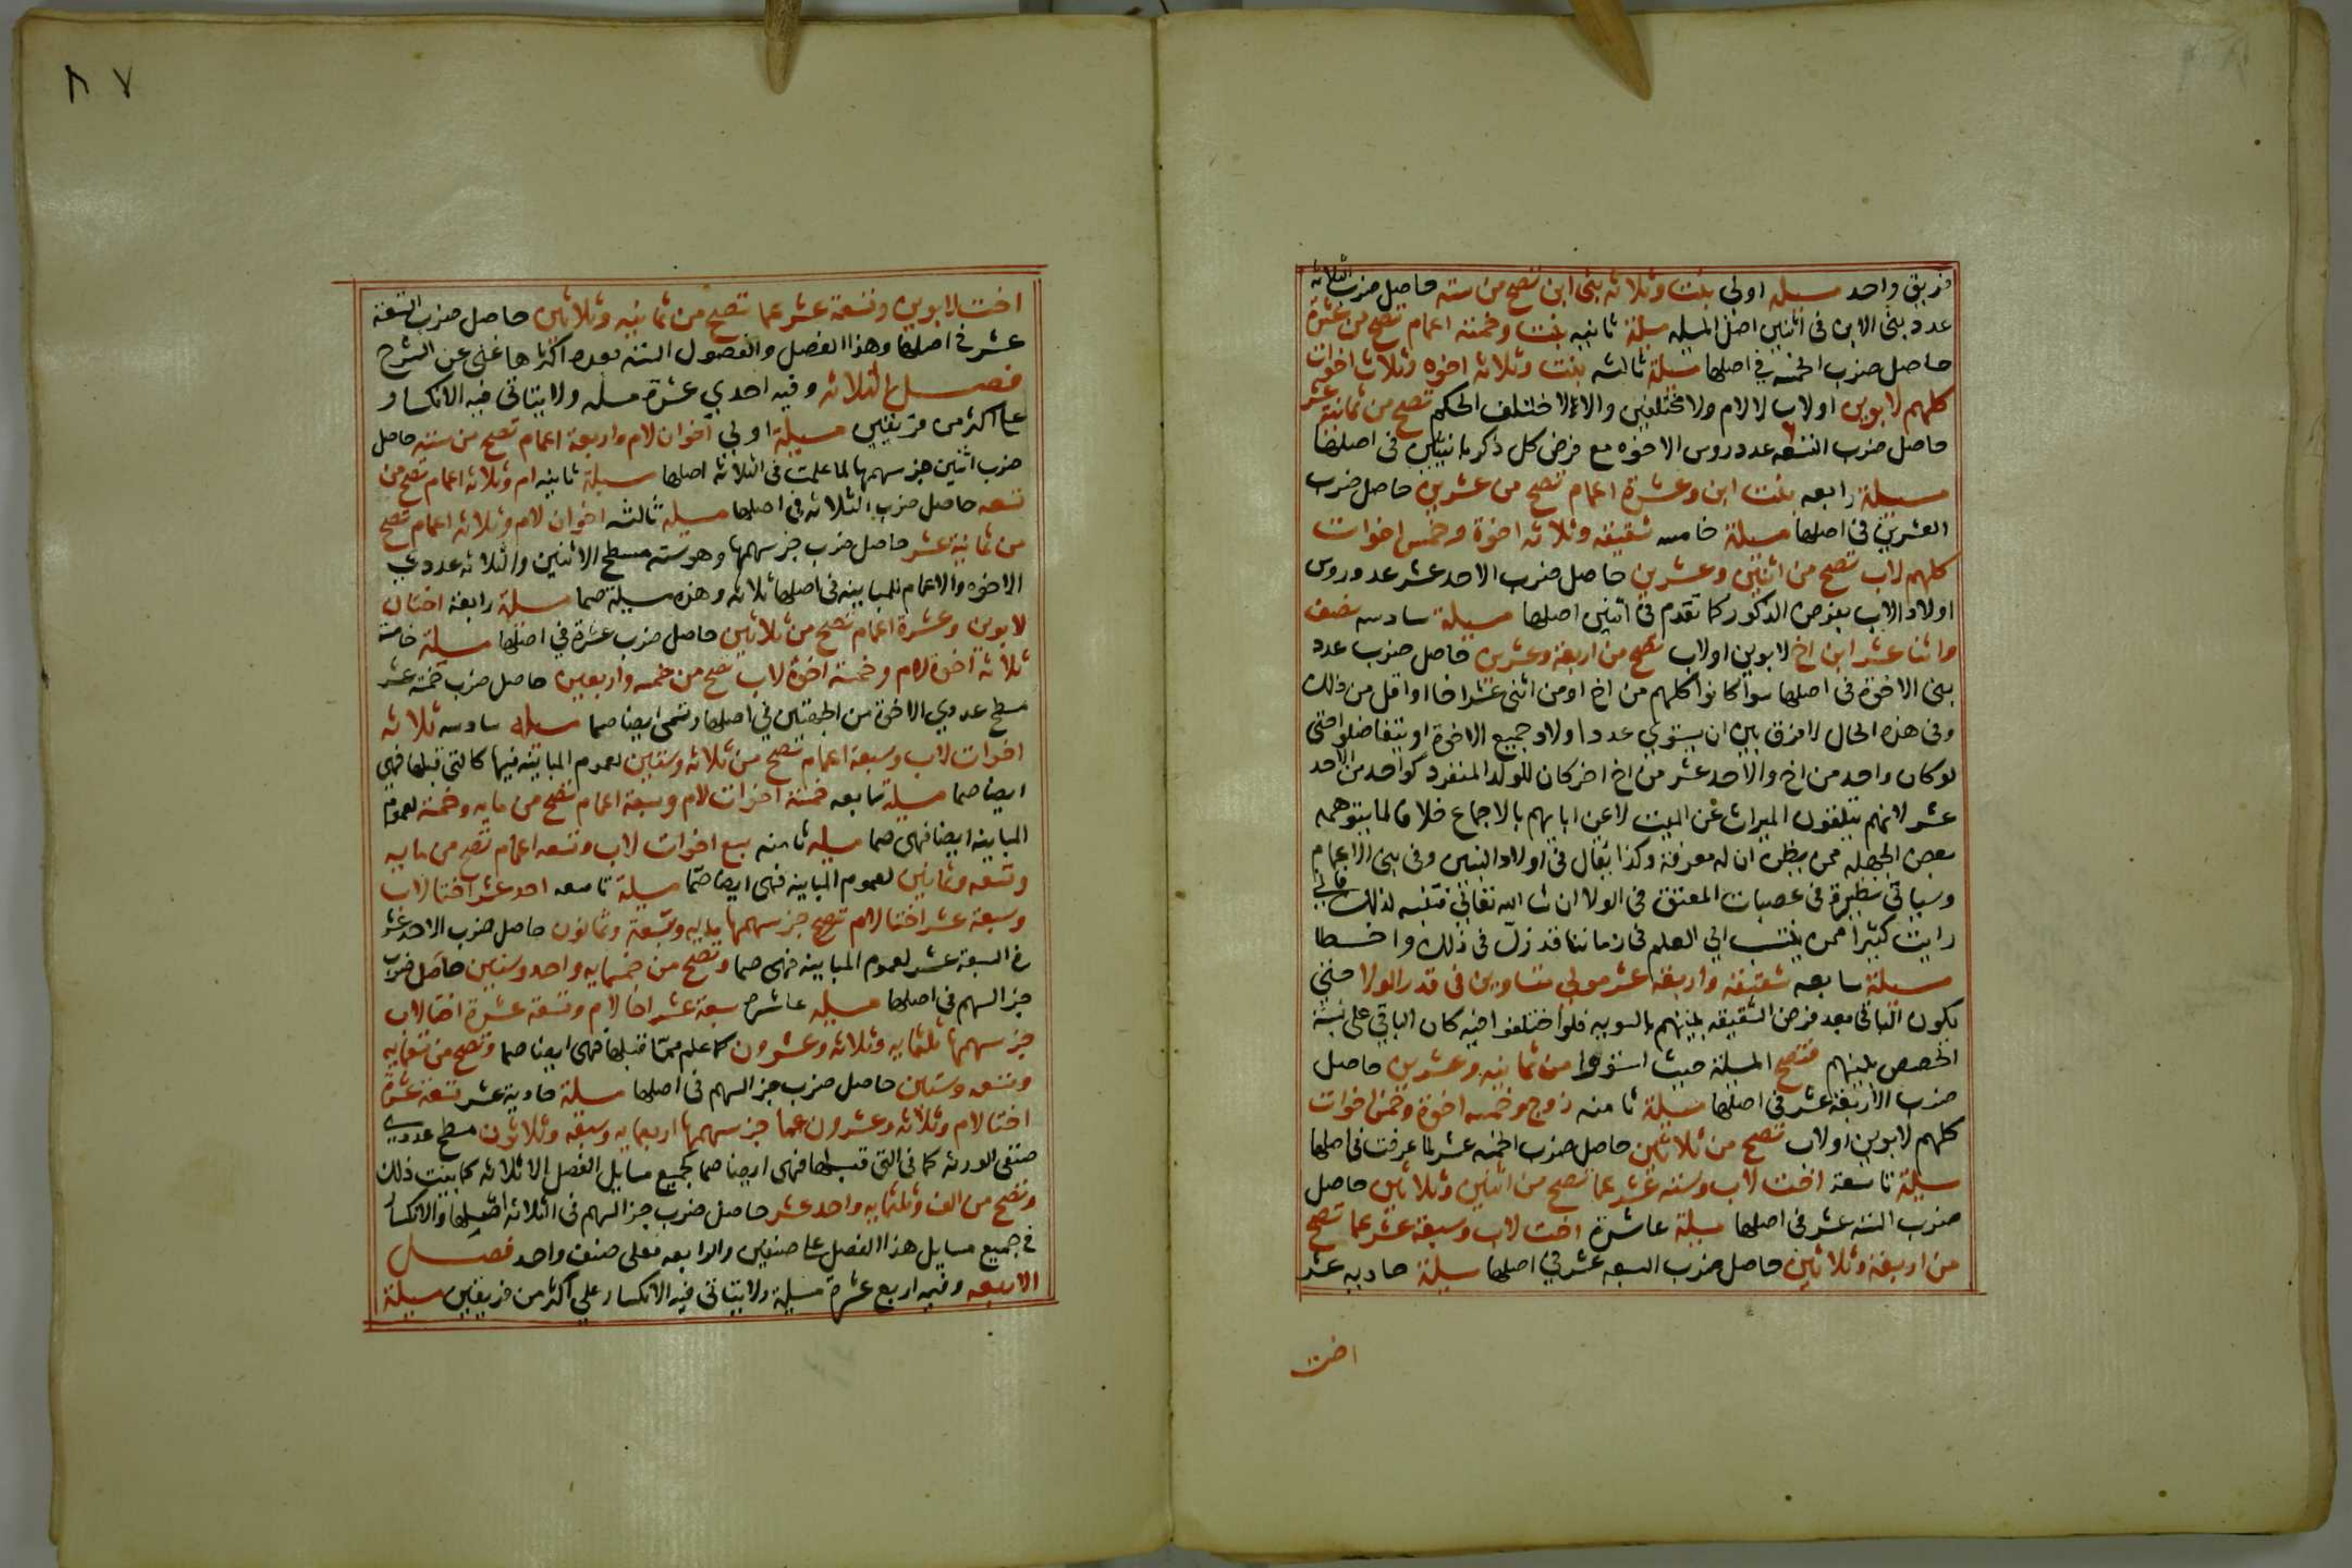 فريق واحد مسيله اولي بنت وثلاثه بنى ابن تصح من سته حاصل ضرب الثلاثه
عدد بنى الابن فى اثنين اصل المسله مسلة ثانيه بنت وخمسة اعمام تصح من عشرة
حاصل ضرب الخمسه في اصلها مسيلة ثالثه بنت وثلاثه اخوه وثلاث اخوات
كلهم لابوين او لاب لا لام ولا مختلفين والا لاختلف الحكم تصح من ثمانية عشر
حاصل ضرب التسعه عدد روس الاخوه مع فرض كل ذكر بانثيين فى اصلها
مسيلة رابعه بنت ابن وعشرة اعمام تصح من عشرين حاصل ضرب
العشرين فى اصلها مسيلة خامسه شقيقه وثلاثه اخوة وخمس اخوات
كلهم لاب تصح من اثنين وعشرين حاصل ضرب الاحد عشر عدد روس
اولاد الاب بفرض الذكور كما تقدم فى اثنين اصلها مسيلة سادسه نصف
واثنا عشر ابن اخ لابوين او لاب تصح من اربعة وعشرين حاصل ضرب عدد
بنى الاخوة فى اصلها سوا كانوا كلهم من اخ او من اثنى عشر اخا او اقل من ذلك
وفى هذه الحال لا فرق بين ان يستوي عدد اولاد جميع الاخوة او يتفاضلوا حتى
لو كان واحد من اخ والاحد عشر من اخ اخر كان للولد المنفرد كواحد من الاحد
عشر لانهم يتلقون الميراث عن الميت لا عن ابايهم بالاجماع خلافا لما يتوهمه
بعض الجهله ممن يظن ان له معرفة وكذا يقال فى اولاد البنين وفى بنى الاعمام
وسياتى نظيره فى عصبات المعتق فى الولا ان شا الله تعالي فتنبه لذلك فاني
رايت كثيرا ممن ينتسب الي العلم فى زماننا قد زل فى ذلك واخطا
مسيلة سابعه شقيقه واربعة عشر مولي متساوين فى قدر الولا حتى
يكون الباقى بعد فرض الشقيقه بينهم بالسويه فلو اختلفوا فيه كان الباقي على نسبة
الحصص بينهم فتصح المسيلة حيث استووا من ثمانيه وعشرين حاصل
ضرب الاربعة عشر فى اصلها مسيلة ثامنه زوج وخمسه اخوة وخمس اخوات
كلهم لابوين او لاب تصح من ثلاثين حاصل ضرب الخمسه عشر لما عرفت فى اصلها
مسيلة تاسعة اخت لاب وسته عشر عما تصح من اثنين وثلاثين حاصل
ضرب السته عشر فى اصلها مسيلة عاشرة اخت لاب وسبعة عشر عما تصح
من اربعة وثلاثين حاصل ضرب السبعه عشر في اصلها مسيلة حاديه عشر
اخت
٨٧
اخت لابوين وتسعة عشر عما تصح من ثمانيه وثلاثين حاصل ضرب التسعة
عشر فى اصلها وهذا الفصل والفصول الستة بعده اكثرها غنى عن الشرح
فصل الثلاثه وفيه احدي عشرة مسله ولا يتاتى فيه الانكسار
على اكثر من فريقين مسيلة اولي اخوان لام واربعة اعمام تصح من سته حاصل
ضرب اثنين جز سهمها لما علمت فى الثلاثه اصلها مسيلة ثانيه ام وثلاثه اعمام تصح من
تسعه حاصل ضرب الثلاثه فى اصلها مسيله ثالثه اخوان لام وثلاثه اعمام تصح
من ثمانية عشر حاصل ضرب جز سهمها وهو سته مسطح الاثنين والثلاثه عددي
الاخوه والاعمام للمباينه فى اصلها ثلاثه وهذه مسيلة صما مسيلة رابعة اختان
لابوين وعشرة اعمام تصح من ثلاثين حاصل ضرب عشرة في اصلها مسيلة خامسة
ثلاثه اخوة لام وخمسة اخوة لاب تصح من خمسه واربعين حاصل ضرب خمسة عشر
مسطح عددي الاخوة من الجهتين في اصلها وتسمى ايضا صما مسيله سادسه ثلاثه
اخوات لاب وسبعة اعمام تصح من ثلاثه وستين لعموم المباينه فيها كالتى قبلها فهى
ايضا صما مسيلة سابعه خمسة اخوات لام وسبعة اعمام تصح من مايه وخمسة لعموم
المباينه ايضا فهى صما مسيله ثامنه سبع اخوات لاب وتسعه اعمام تصح من مايه
وتسعه وثمانين لعموم المباينه فهى ايضا صما مسيلة تاسعه احد عشر اختا لاب
وسبعة عشر اختا لام تصح جز سهمها مايه وسبعة وثمانون حاصل ضرب الاحد عشر
فى السبعة عشر لعموم المباينه فهى صما وتصح من خمسمايه واحد وستين حاصل ضرب
جز السهم فى اصلها مسيله عاشره سبعة عشر اخا لام وتسعة عشرة اختا لاب
جز سهمها ثلثمايه وثلاثه وعشرون كما علم مما قبلها فهى ايضا صما وتصح من تسعمايه
وتسعه وستين حاصل ضرب جز السهم فى اصلها مسيلة حادية عشر تسعة عشرة
اختا لام وثلاثه وعشرون عما جز سهمها اربعمايه وسبعه وثلاثون مسطح عددي
صنفى الورثه كما فى التى قبلها فهى ايضا صما كجميع مسايل الفصل الا ثلاثه كما بينت ذلك
وتصح من الف وثلثمايه واحد عشر حاصل ضرب جز السهم فى الثلاثه اصلها والانكسار
فى جميع مسايل هذا الفصل على صنفين والرابعه فعلى صنف واحد فصل
الاربعه وفيه اربع عشرة مسيلة ولا يتاتى فيه الانكسار على اكثر من فريقين مسيلة